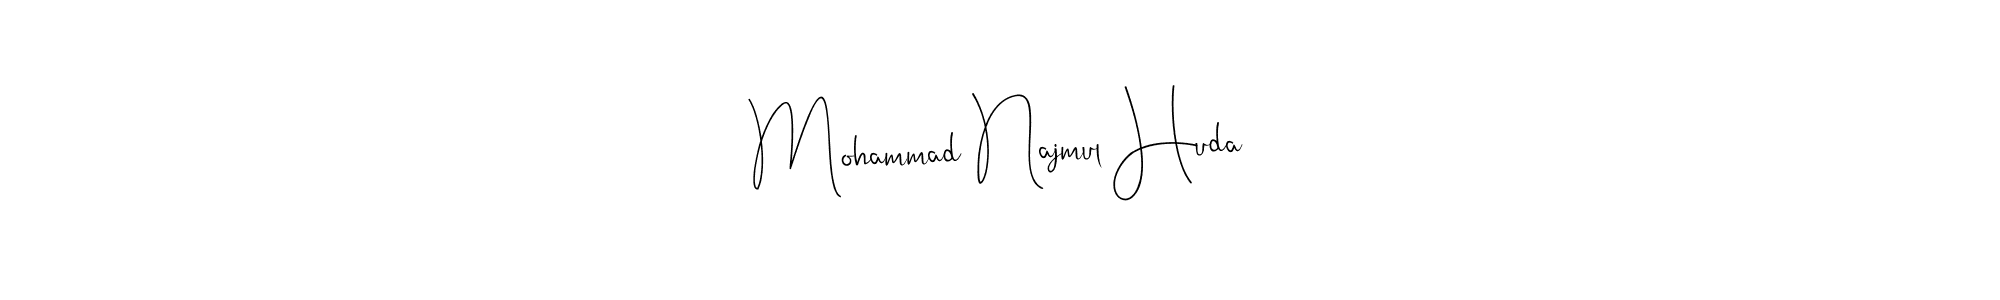 Mohammad Najmul Huda